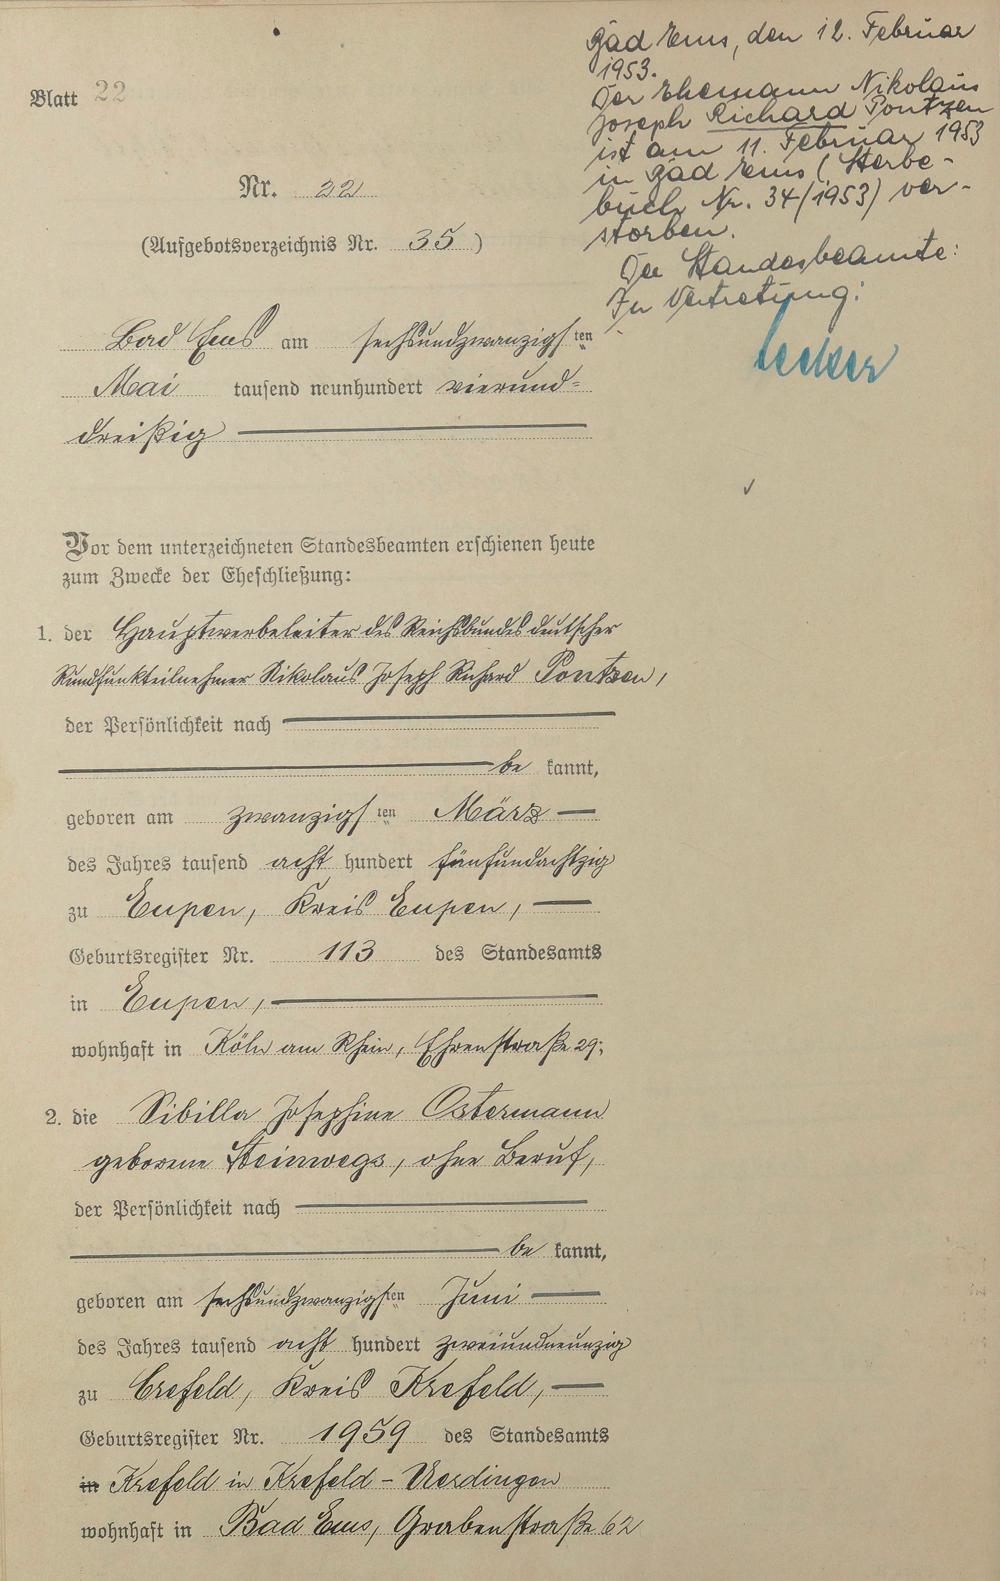 Blatt 22
Nr. 22
(Aufgebotsverzeichnis Nr. 35)
Bad Ems, den 12. Februar
1953.
Der Ehemann Nikolaus
Joseph Richard Pontzen
ist am 11. Februar 1953
in Bad Ems (Sterbe-
buch Nr. 34/1953) ver-
storben.
Der Standesbeamte:
In Vertretung:
Becker
Bad Ems am sechsundzwanzigsten
Mai tausend neunhundert vierund-
dreißig
Vor dem unterzeichneten Standesbeamten erschienen heute
zum Zwecke der Eheschließung:
1. der Hauptwerbeleiter des Reichsbundes deutscher
Rundfunkteilnehmer Nikolaus Joseph Richard Pontzen,
der Persönlichkeit nach
be kannt,
geboren am zwanzigsten März
des Jahres tausend acht hundert fünfundachtzig
zu Eupen, Kreis Eupen,
Geburtsregister Nr. 113 des Standesamts
in Eupen,
wohnhaft in Köln am Rhein, Ehrenstraße 29;
2. die Sibilla Josephine Ostermann
geborene Steinwegs, ohne Beruf,
der Persönlichkeit nach
be kannt,
geboren am sechsundzwanzigsten Juni
des Jahres tausend acht hundert zweiundneunzig
zu Crefeld, Kreis Krefeld,
Geburtsregister Nr. 1959 des Standesamts
in Krefeld in Krefeld - Uerdingen
wohnhaft in Bad Ems, Grabenstraße 62